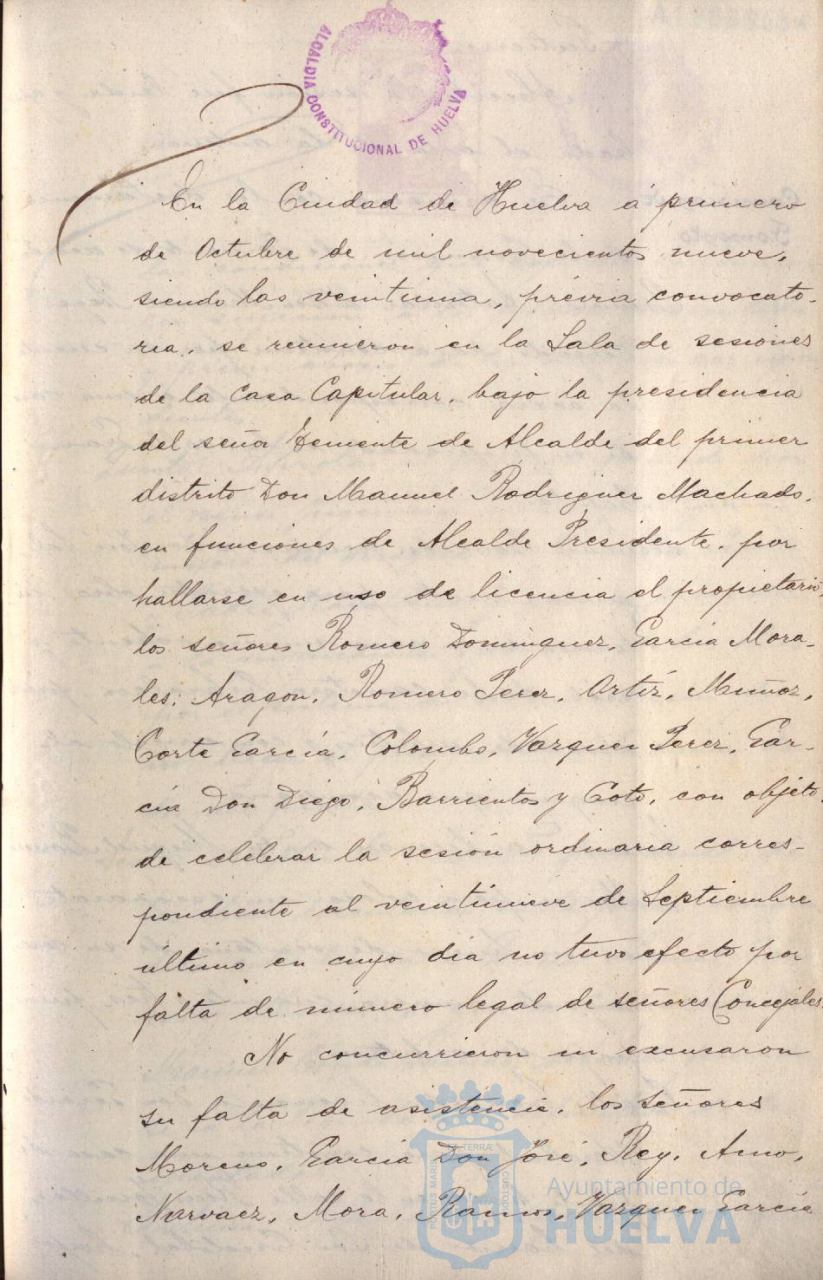 ALCALDIA CONSTITUCIONAL DE HUELVA
En la Ciudad de Huelva á primero
de Octubre de mil novecientos nueve,
siendo las veintiuna, prévia convocato-
ria, se reunieron en la Sala de sesiones
de la Casa Capitular, bajo la presidencia
del señor Teniente de Alcalde del primer
distrito Don Manuel Rodriguez Machado,
en funciones de Alcalde Presidente, por
hallarse en uso de licencia el propietario,
los señores Romero Dominguez, Garcia Mora-
les, Aragon, Romero Perez, Ortíz, Muñoz,
Corte García, Colombo, Vazquez Perez, Gar-
cía Don Diego, Barrientos y Coto, con objeto
de celebrar la sesión ordinaria corres-
pondiente al veintinueve de Septiembre
último en cuyo dia no tuvo efecto por
falta de número legal de señores Concejales.
No concurrieron ni excusaron
su falta de asistencia, los señores
Moreno, García Don José, Rey,
Narvaez, Mora, Ramos, Vazquez García
Ayuntamiento de
HUELVA